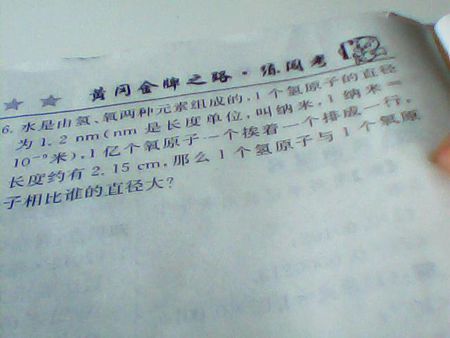 黄冈金牌之路·练闯考
6. 水是由氢、氧两种元素组成的,1个氢原子的直径
为1.2 nm(nm是长度单位,叫纳米,1纳米=
10⁻⁹米),1亿个氧原子一个挨着一个排成一行,
长度约有2.15 cm,那么1个氢原子与1个氧原
子相比谁的直径大?